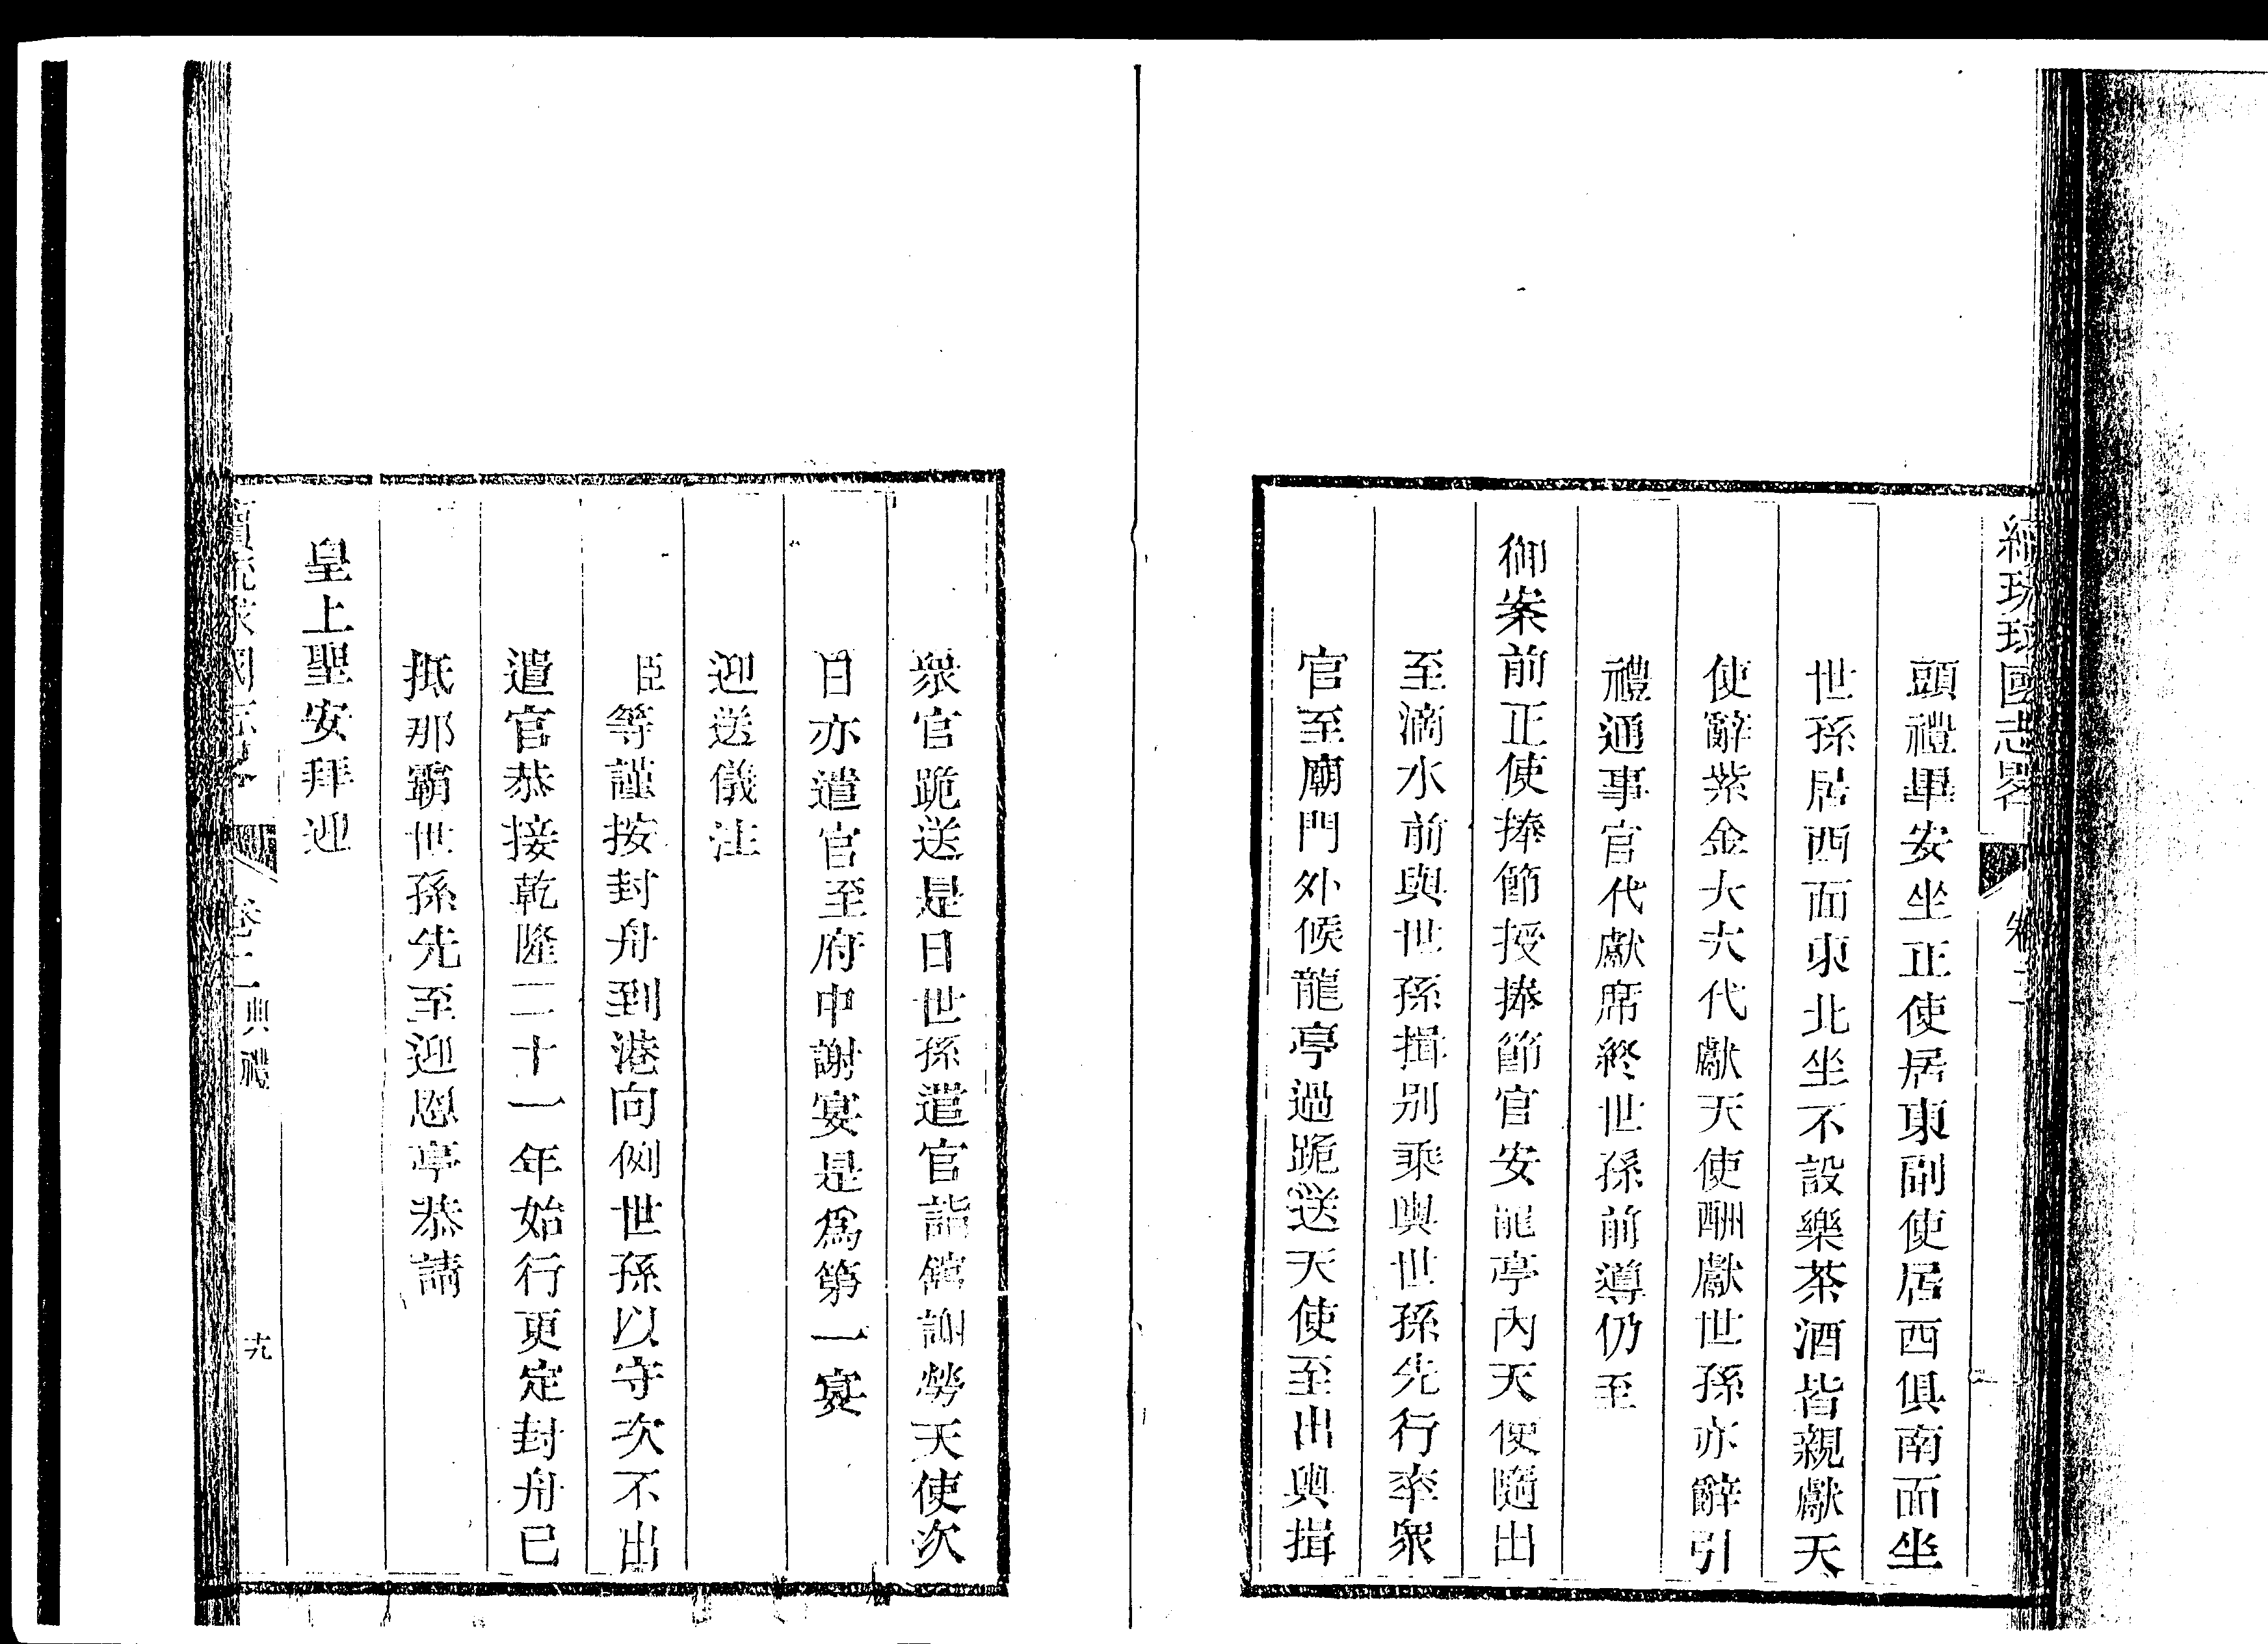 續琉球國志畧 卷二
頭禮畢安坐正使居東副使居西俱南面坐
世孫居西面東北坐不設樂茶酒皆親獻天
使辭紫金大夫代獻天使酬獻世孫亦辭引
禮通事官代獻席終世孫前導仍至
御案前正使捧節授捧節官安龍亭內天使隨出
至滴水前與世孫揖别乘輿世孫先行率衆
官至廟門外候龍亭過跪送天使至出輿揖
衆官跪送是日世孫遣官詣館謝勞天使次
日亦遣官至府中謝宴是爲第一宴
迎送儀注
臣等謹按封舟到港向例世孫以守次不出
遣官恭接乾隆二十一年始行更定封舟已
抵那霸世孫先至迎恩亭恭請
皇上聖安拜迎
續琉球國志畧 卷二 典禮 十九